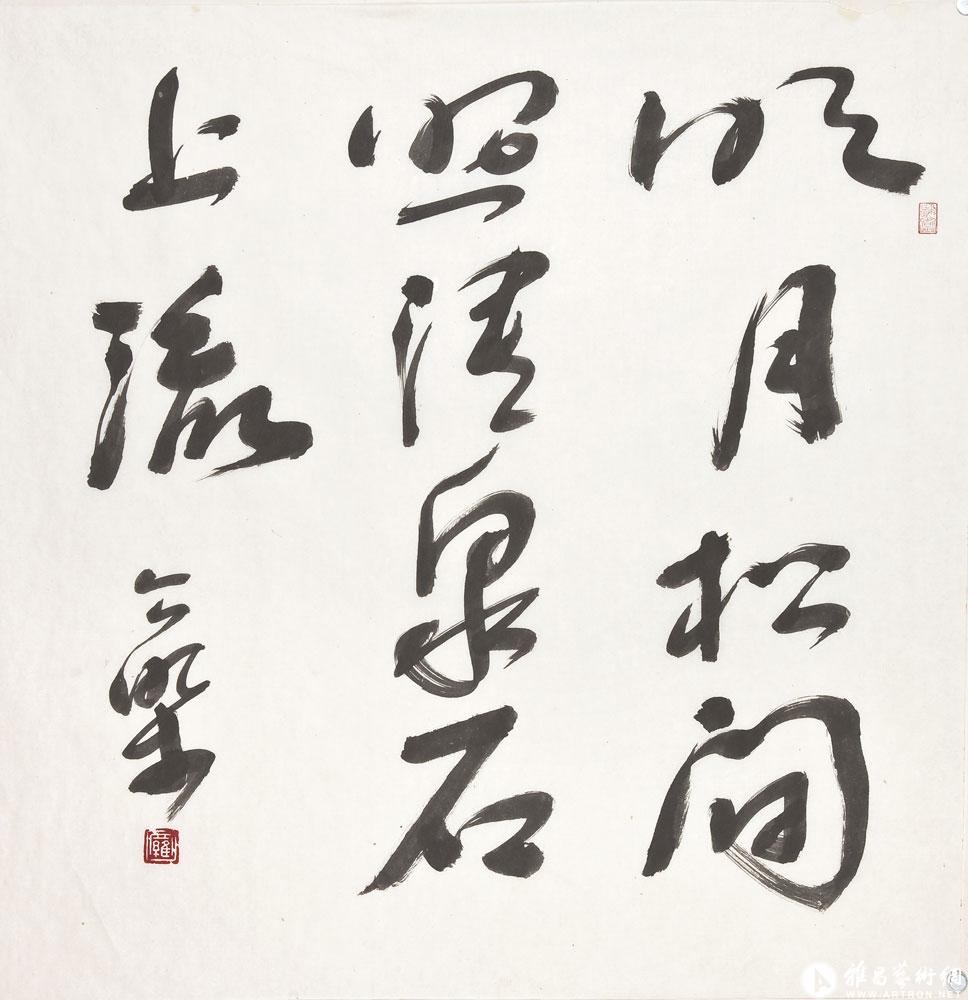 明月松間
照清泉石
上流
雅昌藝術網
WWW.ARTRON.NET